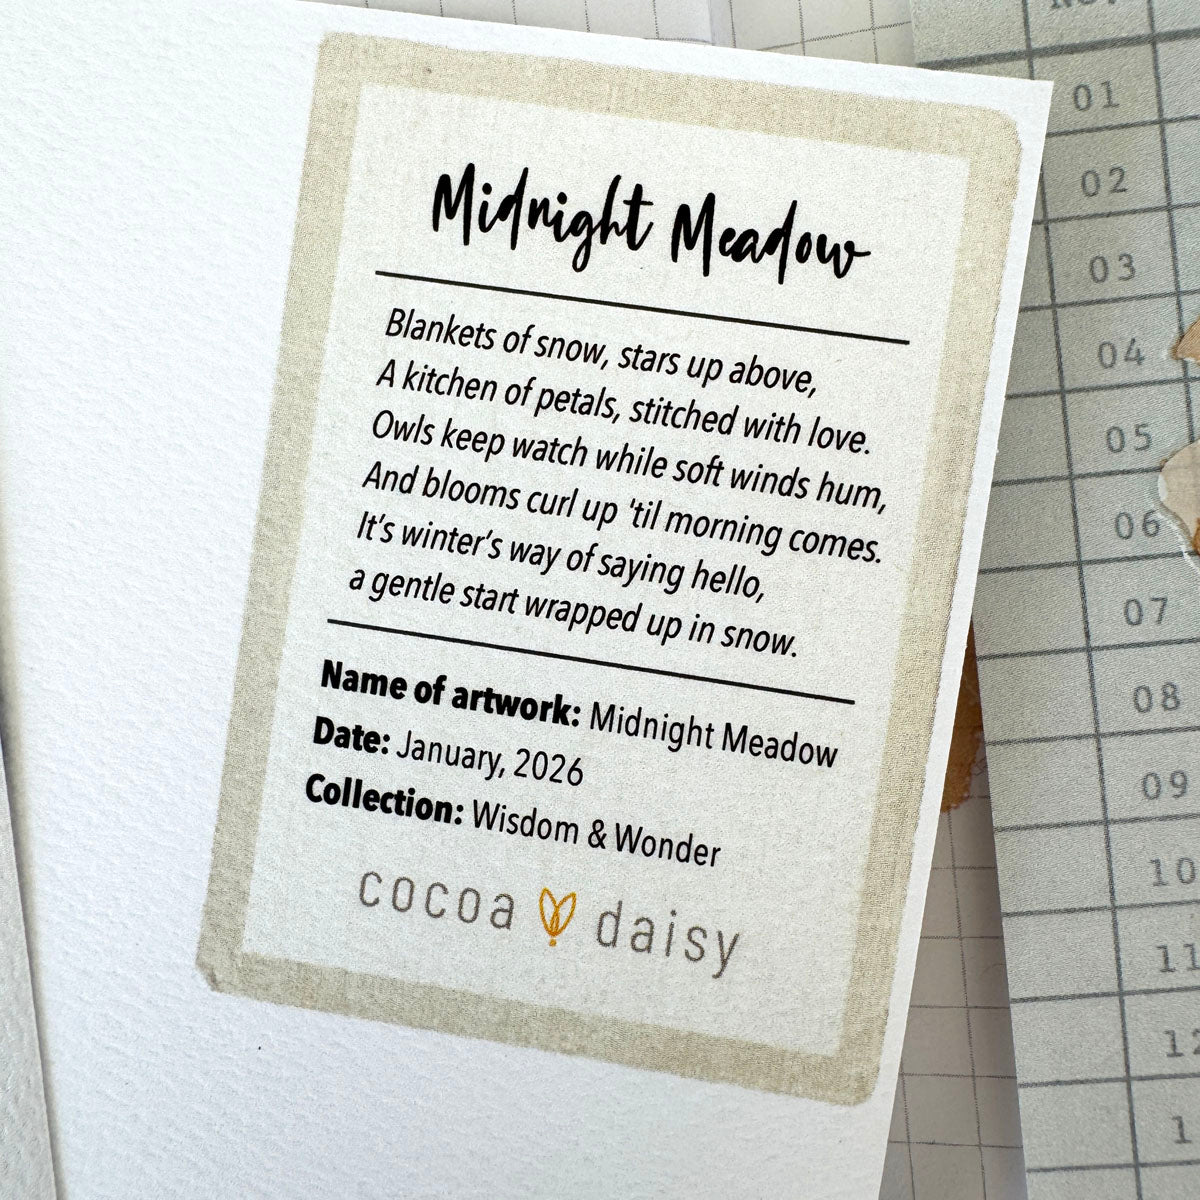 Midnight Meadow
Blankets of snow, stars up above,
A kitchen of petals, stitched with love.
Owls keep watch while soft winds hum,
And blooms curl up 'til morning comes.
It's winter's way of saying hello,
a gentle start wrapped up in snow.
Name of artwork: Midnight Meadow
Date: January, 2026
Collection: Wisdom & Wonder
cocoa daisy
01
02
03
04
05
06
07
08
09
10
11
12